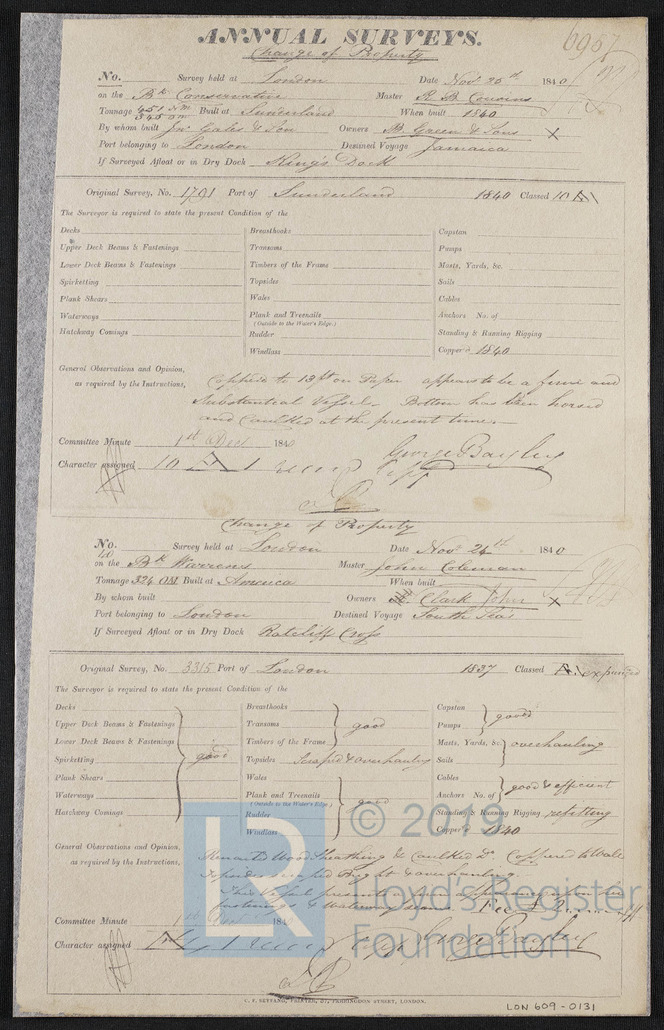 ANNUAL SURVEYS.
Change of Property
6967
No. Survey held at London Date Novr 26th 1840
on the Bk Conservative Master R B Cousins
Tonnage 451 N.M. 545 O.M. Built at Sunderland When built 1840
By whom built Jno Gales & Son Owners B. Green & Sons X
Port belonging to London Destined Voyage Jamaica
If Surveyed Afloat or in Dry Dock King's Dock
Original Survey, No. 1791 Port of Sunderland 1840 Classed 10 A1
The Surveyor is required to state the present Condition of the
Decks Breasthooks Capstan
Upper Deck Beams & Fastenings Transoms Pumps
Lower Deck Beams & Fastenings Timbers of the Frame Masts, Yards, &c.
Spirketting Topsides Sails
Plank Shears Wales Cables
Waterways Plank and Treenails Anchors No. of
(Outside to the Water's Edge.)
Hatchway Comings Rudder Standing & Running Rigging
Windlass Copper'd 1840
General Observations and Opinion, Copper'd to 13 ft on Paper appears to be a firm and
as required by the Instructions, Substantial Vessel Bottom has been horsed
and Caulked at the present time
Committee Minute 1st Decr 1840 George Bayley
Character assigned 10 A 1
Change of Property
No. 40 Survey held at London Date Novr 24th 1840
on the Bk Warrens Master John Coleman
Tonnage 324 OM Built at America When built
By whom built Owners Clark John X
Port belonging to London Destined Voyage South Seas
If Surveyed Afloat or in Dry Dock Ratcliff Cross
Original Survey, No. 3315 Port of London 1837 Classed expunged
The Surveyor is required to state the present Condition of the
Decks Breasthooks Capstan
Upper Deck Beams & Fastenings Transoms good Pumps good
Lower Deck Beams & Fastenings Timbers of the Frame Masts, Yards, &c. overhauling
Spirketting good Topsides Scraped & overhauling Sails
Plank Shears Wales Cables
Waterways Plank and Treenails good Anchors No. of good & efficient
(Outside to the Water's Edge.)
Hatchway Comings Rudder Standing & Running Rigging refitting
Windlass Copper'd 1840
General Observations and Opinion, Wood Sheathing & Caulked Do Coppered to Wales
as required by the Instructions, Topsides scraped Bright & overhauling
This Vessel
fastenings & Waterway seams Fee
Committee Minute 1st Decr 1840
Character assigned George Bayley
C. F. SEYFANG, PRINTER, 57, FARRINGDON STREET, LONDON.
LON 609-0131
LR
© 2019
Lloyd's Register
Foundation